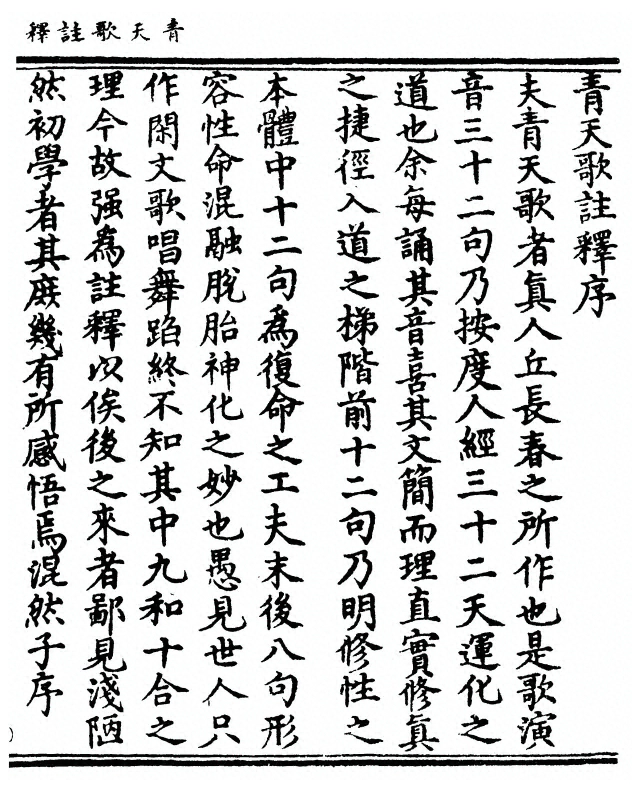 青天歌註釋
青天歌註釋序
夫青天歌者真人丘長春之所作也是歌演
音三十二句乃按度人經三十二天運化之
道也余每誦其音喜其文簡而理直實修真
之捷徑入道之梯階前十二句乃明修性之
本體中十二句為復命之工夫末後八句形
容性命混融脫胎神化之妙也愚見世人只
作閑文歌唱舞蹈終不知其中九和十合之
理今故强為註釋以俟後之來者鄙見淺陋
然初學者其庶幾有所感悟焉混然子序